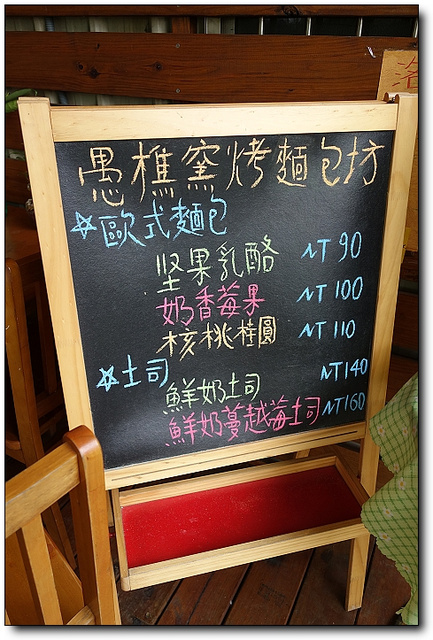 愚樵窯烤麵包坊
☆歐式麵包
坚果乳酪 NT 90
奶香莓果 NT 100
核桃桂圓 NT 110
☆土司
鮮奶土司 NT140
鮮奶蔓越莓土司 NT160